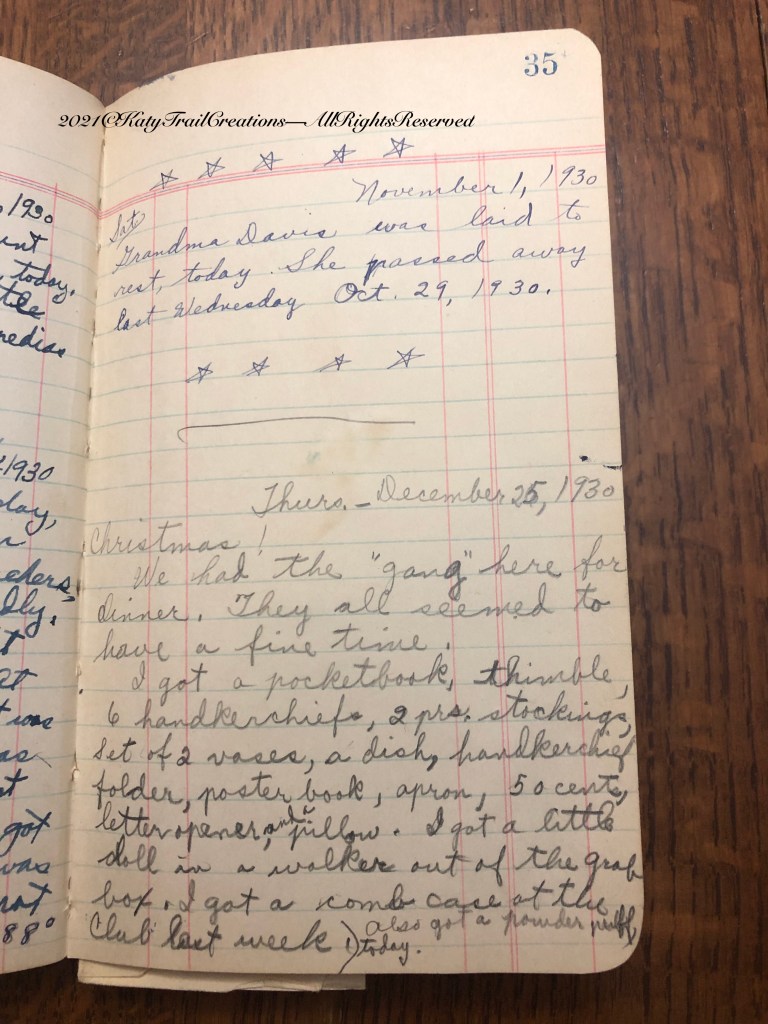 35
2021©KatyTrailCreations—AllRightsReserved
November 1, 1930
Sat
Grandma Davis was laid to
rest, today. She passed away
last Wednesday Oct. 29, 1930.
Thurs. - December 25, 1930
Christmas!
We had the "gang" here for
dinner. They all seemed to
have a fine time.
I got a pocketbook, thimble,
6 handkerchiefs, 2 prs. stockings,
set of 2 vases, a dish, handkerchief
folder, poster book, apron, 50 cents,
letter opener, and a pillow. I got a little
doll in a walker out of the grab
box. I got a comb case at the
Club last week!) also got a powder puff
today.
, 1930
today.
1930
day,
was
got
was
not
88°